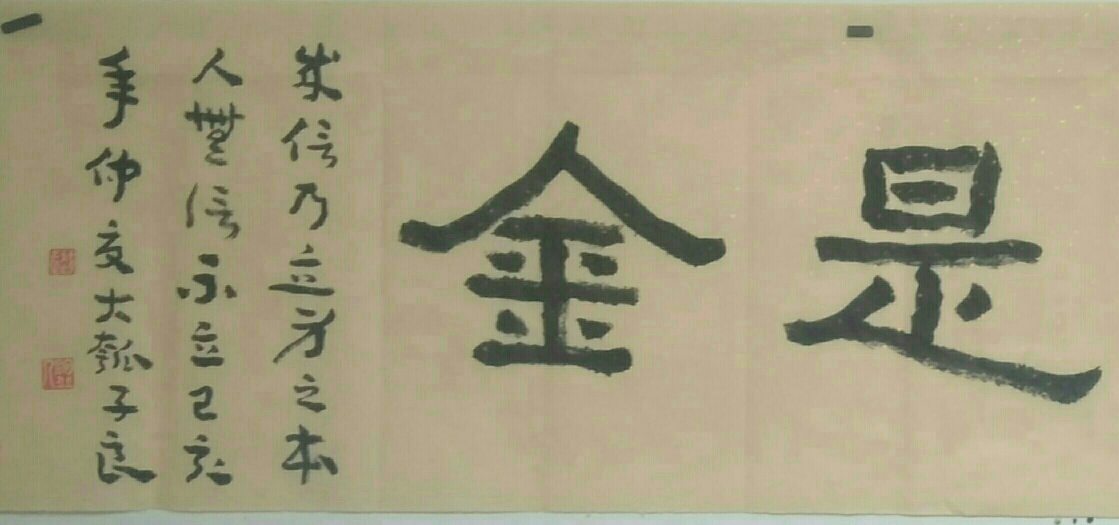 是金
成信乃立身之本
人無信不立己亥
年仲夏大瓠子良